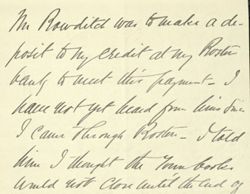 Mr Bowditch was to make a de-
posit to my credit at my Boston
bank to meet this payment - I
have not yet heard from him since
I came through Boston - I told
him I thought the Town books
would not close until the end of